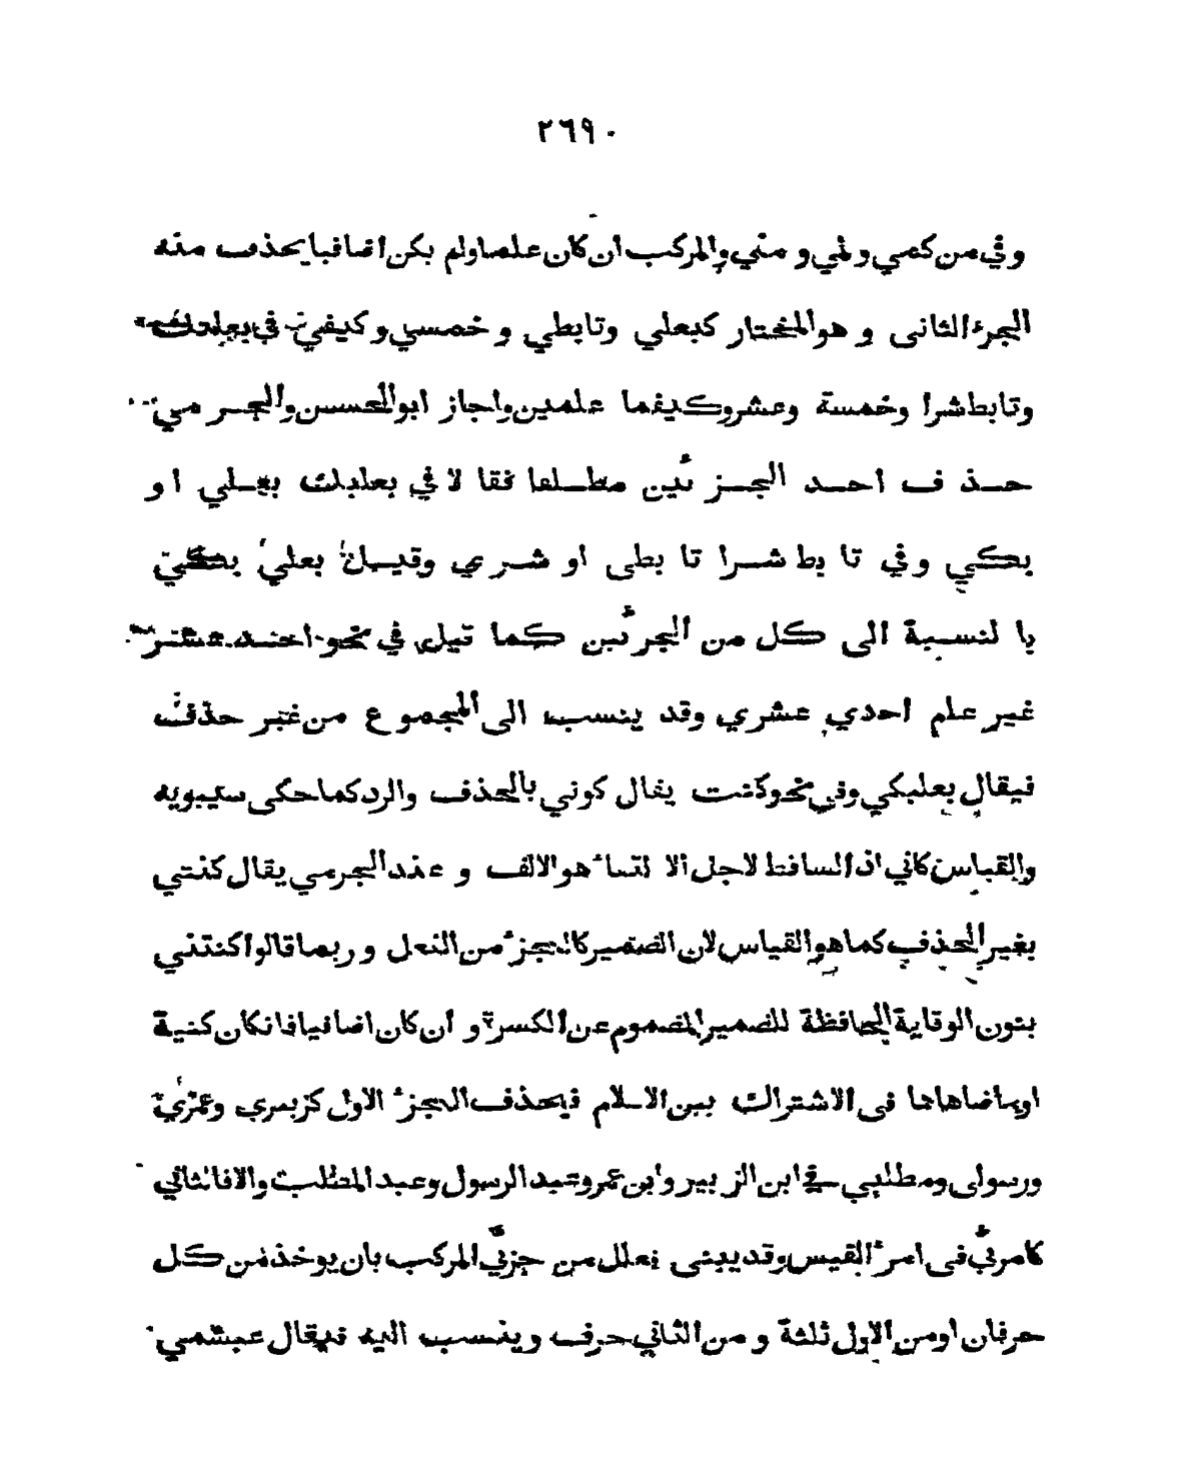 ٢٦٩٠
وفي من كمي ولمي و مني والمركب ان كان علما ولم يكن اضافيا يحذف منه
الجزء الثانى و هو المختار كبعلي وتابطي و خمسي وكيفي في بعلبك
وتابطشرا وخمسة وعشر وكيفما علمين واجاز ابوالحسن والجرمي
حذف احد الجزئين مطلقا فقالا في بعلبك بعلي او
بكي وفي تابط شرا تابطى او شري وقيل بعلي بكي
بالنسبة الى كل من الجزئين كما قيل في نحو احد عشر
غير علم احدي عشري وقد ينسب الى المجموع من غير حذف
فيقال بعلبكي وفي نحو كنت يقال كوني بالحذف والرد كما حكى سيبويه
والقياس كاني اذ الساقط لاجل الالتماء هو الالف و عند الجرمي يقال كنتي
بغير الحذف كما هو القياس لان الضمير كالجزء من الفعل وربما قالوا كنتني
بنون الوقاية الحافظة للضمير المضموم عن الكسرة و ان كان اضافيا فانكان كنية
اوما ضاهاها فى الاشتراك بين الاسلام فيحذف الجزء الاول كزبيري وعمري
ورسولى ومطلبي في ابن الزبير وابن عمر وعبد الرسول وعبد المطلب والا فالثاني
كامرئي فى امرء القيس وقد يبنى فعلل من جزئي المركب بان يوخذ من كل
حرفان اومن الاول ثلثة و من الثاني حرف وينسب اليه فيقال عبشمي